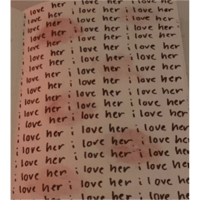 love her i love her i love her
love her i love her i love her
i love her i love her i love her
i love her i love her i love her
i love her i love her i love her
i love her i love her i love her
i love her i love her i love her
i love her i love her i love her
i love her i love her i love her
i love her i love her i love her
i love her i love her i love her
i love her i love her i love her
i love her i love her i love her
i love her i love her i love her